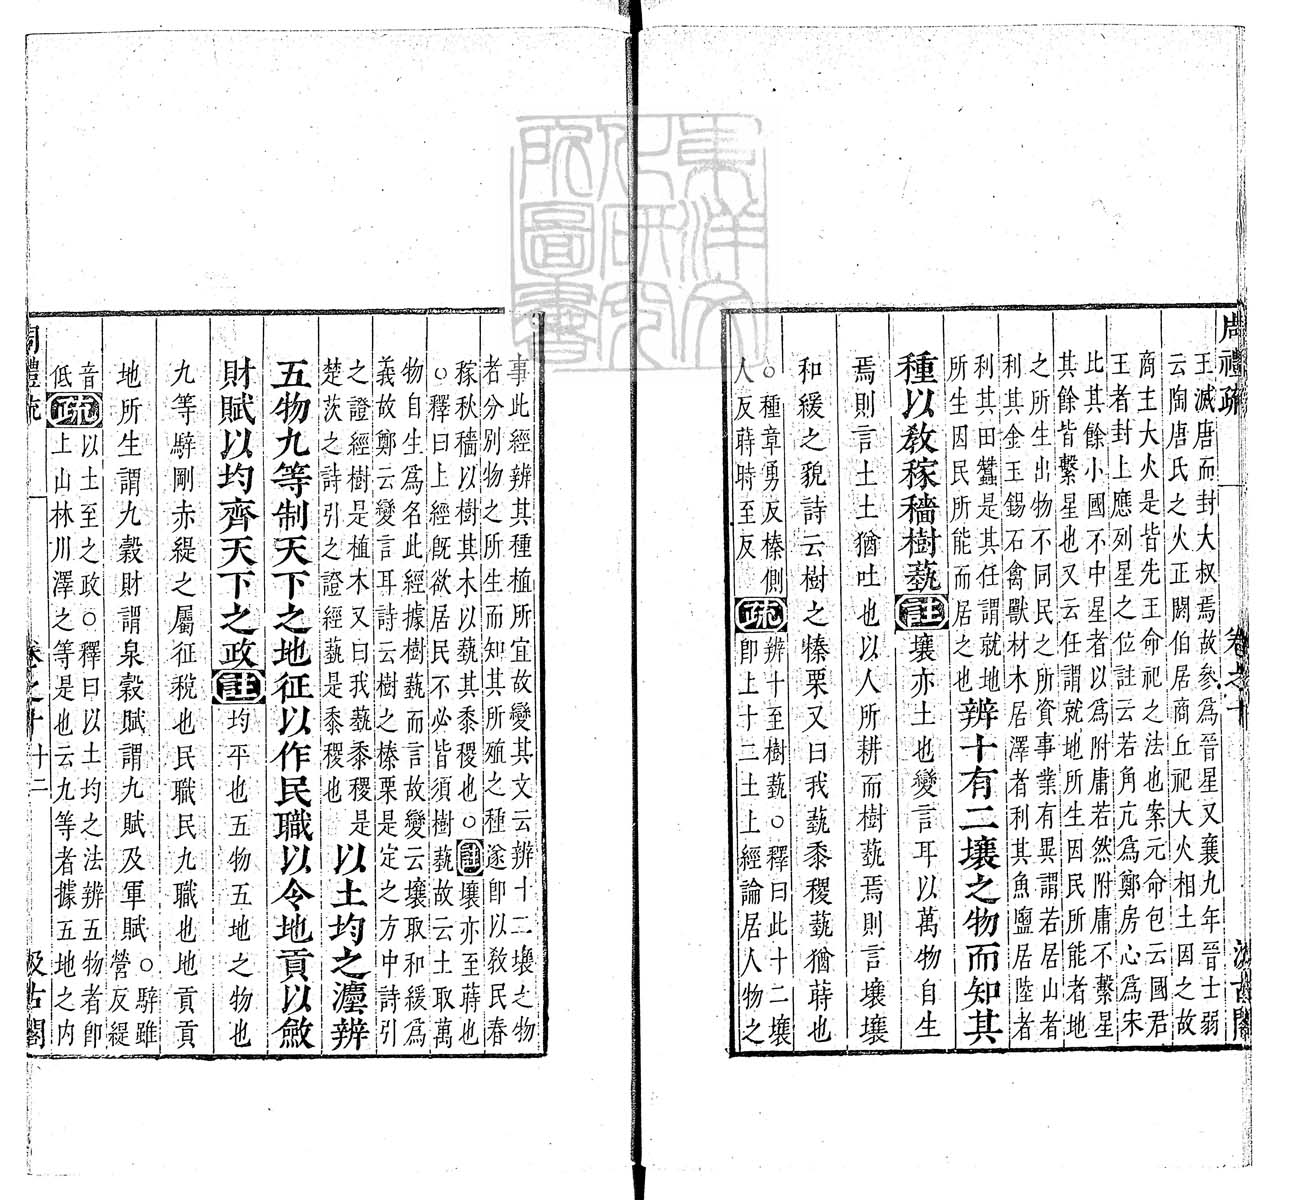 周禮疏 卷之十 汲古閣
王滅唐而封大叔焉故參爲晉星又襄九年晉士弱
云陶唐氏之火正閼伯居商丘祀大火相土因之故
商主大火是皆先王命祀之法也案元命包云國君
王者封上應列星之位註云若角亢爲鄭房心爲宋
比其餘小國不中星者以爲附庸若然附庸不繫星
其餘皆繫星也又云任謂就地所生因民所能者地
之所生出物不同民之所資事業有異謂若居山者
利其金玉錫石禽獸材木居澤者利其魚鹽居陸者
利其田蠶是其任謂就地
所生因民所能而居之也
辨十有二壤之物而知其
種以敎稼穡樹蓺註壤亦土也變言耳以萬物自生
焉則言土土猶吐也以人所耕而樹蓺焉則言壤壤
和緩之貌詩云樹之榛栗又曰我蓺黍稷蓺猶蒔也
○種章勇反榛側
人反蒔時至反
疏辨十至樹蓺○釋曰此十二壤
卽上十二土上經論居人物之
事此經辨其種植所宜故變其文云辨十二壤之物
者分別物之所生而知其所殖之種遂卽以敎民春
稼秋穡以樹其木以蓺其黍稷也○註壤亦至蒔也
○釋曰上經旣欲居民不必皆須樹蓺故云土取萬
物自生爲名此經據樹蓺而言故變云壤取和緩爲
義故鄭云變言耳詩云樹之榛栗是定之方中詩引
之證經樹是植木又曰我蓺黍稷是
楚茨之詩引之證經蓺是黍稷也
以土均之灋辨
五物九等制天下之地征以作民職以令地貢以斂
財賦以均齊天下之政註均平也五物五地之物也
九等騂剛赤緹之屬征稅也民職民九職也地貢貢
地所生謂九穀財謂泉穀賦謂九賦及軍賦○騂雖
營反緹
音
低
疏以土至之政○釋曰以土均之法辨五物者卽
上山林川澤之等是也云九等者據五地之內
周禮疏 卷之十 十二 汲古閣
東洋文化研究所圖書